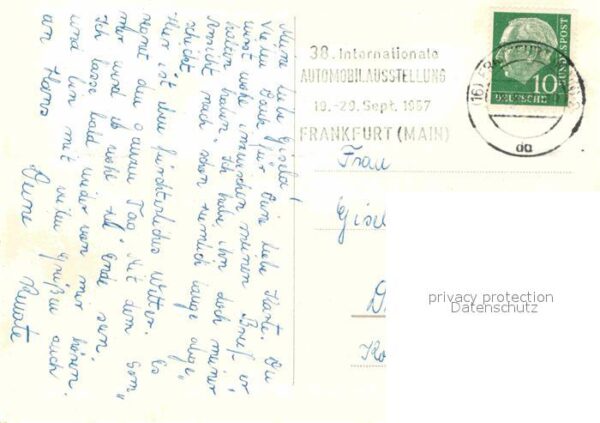 Meine liebe Gisela!
Vielen Dank für Deine liebe Karte. Du
wirst wohl inzwischen meinen Brief er
halten haben. Ich habe ihn doch meiner
Ansicht nach schon ziemlich lange abge
schickt.
Hier ist ein fürchterliches Wetter. Es
regnet den ganzen Tag. Mit dem Som
mer wird es wohl zu Ende sein.
Ich lasse bald wieder von mir hören
und bin mit vielen Grüßen auch
an Hans
Deine Renate
38. Internationale
AUTOMOBILAUSSTELLUNG
19.-29. Sept. 1957
FRANKFURT (MAIN)
(16) FRANKFURT
da
10
DEUTSCHE
BUNDESPOST
Frau
Gisel
D
privacy protection
Datenschutz